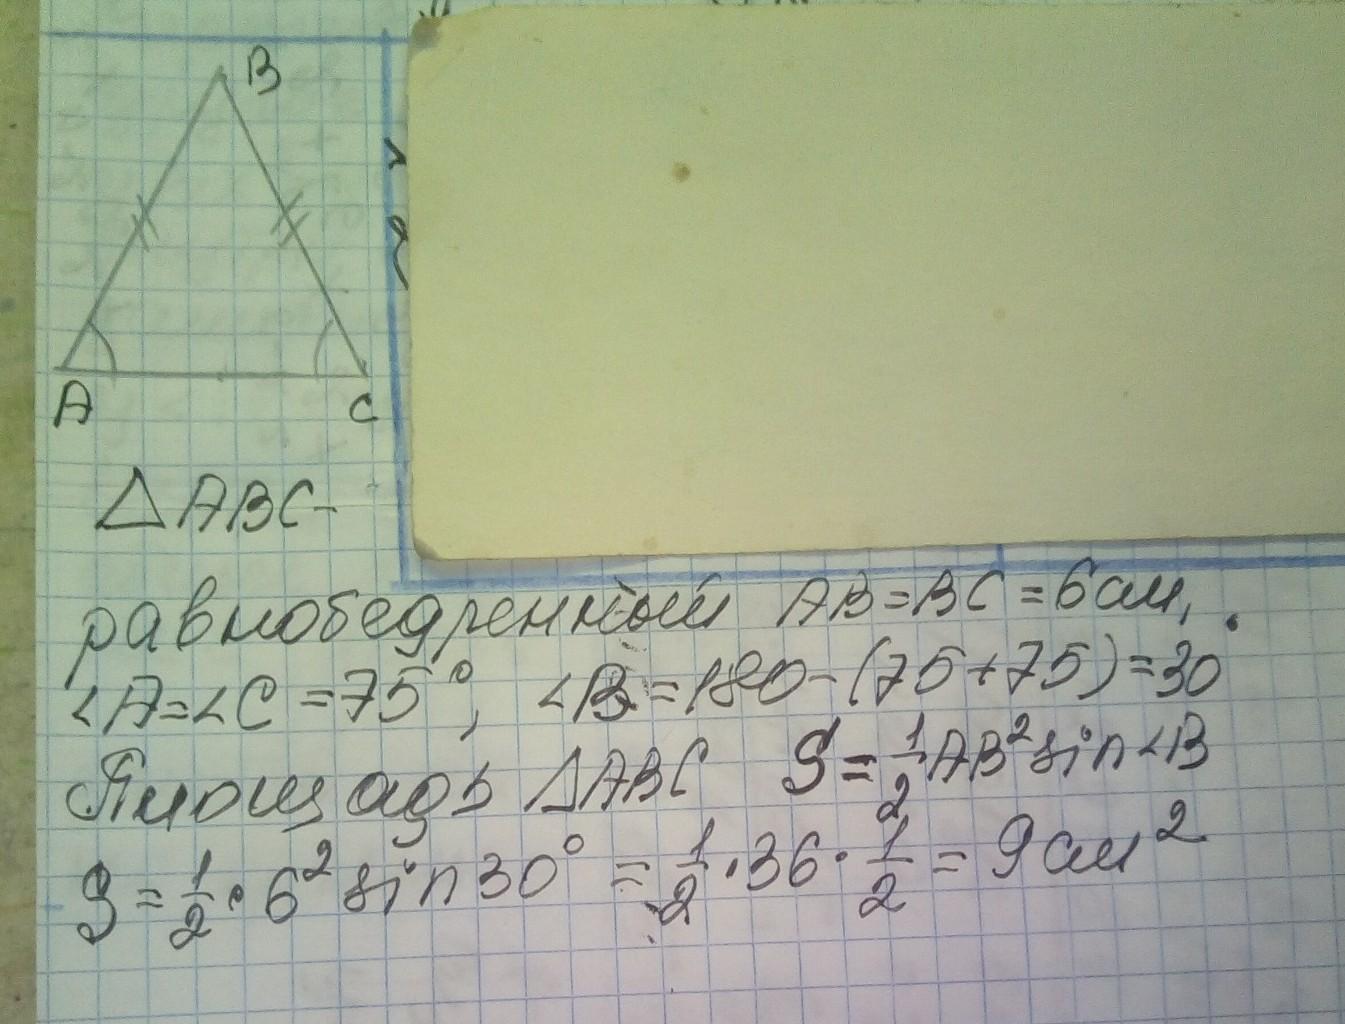 B
A C
△ABC-
равнобедренный AB=BC=6см,
∠A=∠C=75°, ∠B=180-(75+75)=30°
Площадь △ABC S=½AB²sin∠B
S=½·6²sin30°=½·36·½=9см²